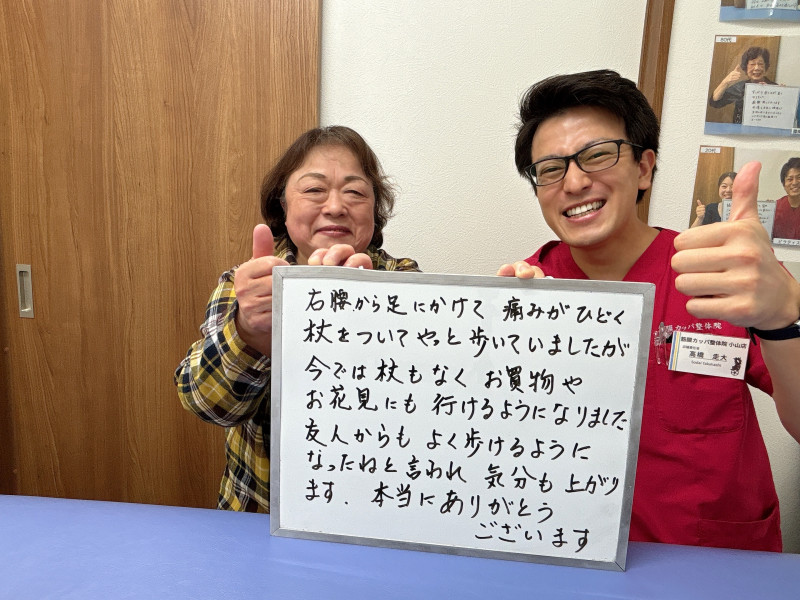 右腰から足にかけて 痛みがひどく
杖をついてやっと歩いていましたが
今では杖もなく お買物や
お花見にも 行けるようになりました
友人からも よく歩けるように
なったねと言われ 気分も上がり
ます. 本当にありがとう
ございます
カッパ整体院
筋膜カッパ整体院 小山店
高橋 圭大
80代